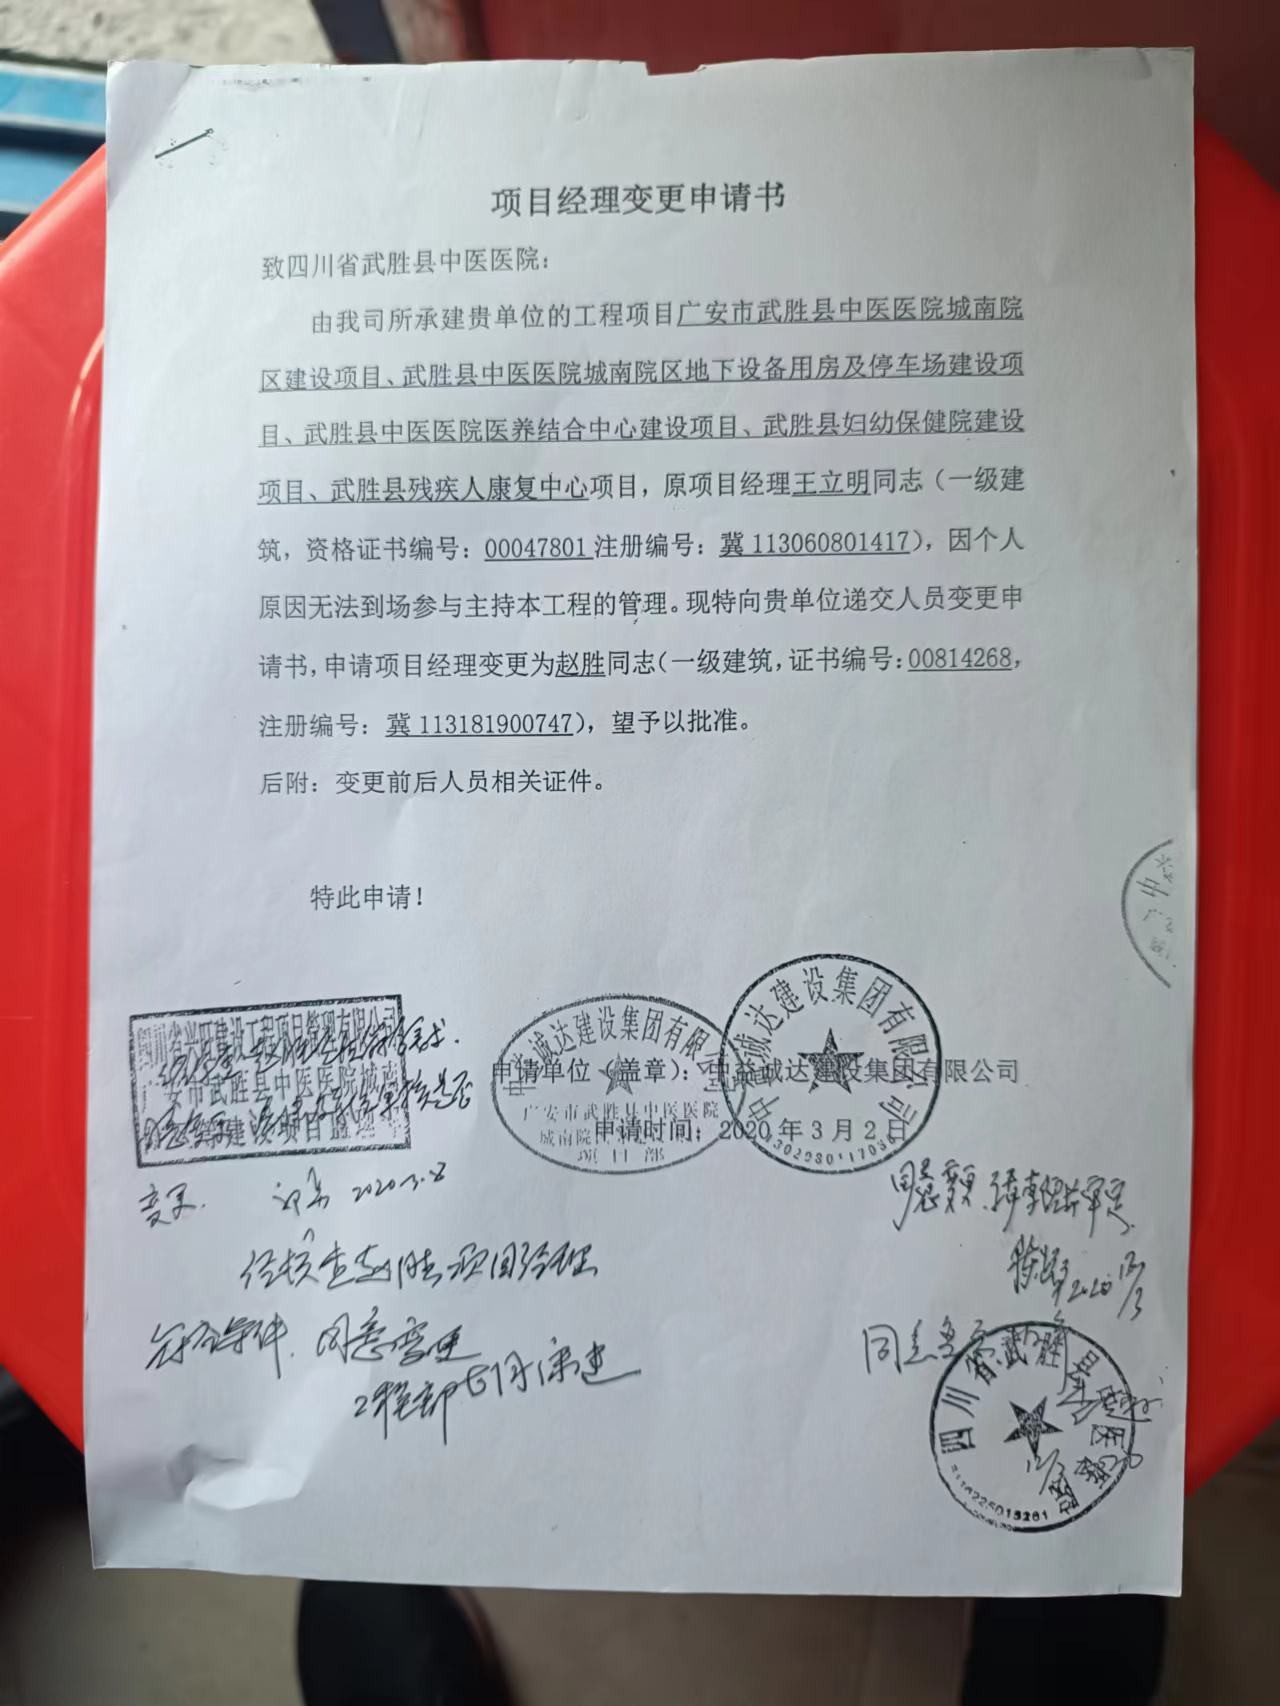 项目经理变更申请书
致四川省武胜县中医医院：
由我司所承建贵单位的工程项目广安市武胜县中医医院城南院
区建设项目、武胜县中医医院城南院区地下设备用房及停车场建设项
目、武胜县中医医院医养结合中心建设项目、武胜县妇幼保健院建设
项目、武胜县残疾人康复中心项目，原项目经理王立明同志（一级建
筑，资格证书编号：00047801 注册编号：冀 113060801417），因个人
原因无法到场参与主持本工程的管理。现特向贵单位递交人员变更申
请书，申请项目经理变更为赵胜同志（一级建筑，证书编号：00814268，
注册编号：冀 113181900747），望予以批准。
后附：变更前后人员相关证件。
特此申请！
四川省兴旺建设工程项目管理有限公司
广安市武胜县中医医院城南
诚达建设集团有限公
广安市武胜县中医医院
城南院
项目部
诚达建设集团有限公司
申请单位（盖章）：中益诚达建设集团有限公司
申请时间：2020 年 3 月 2 日
变更.
2020.3.2
经核查赵胜项目经理
符合条件，同意变更
工程部
同意变更
2020
同意
四川省武胜县中医医院